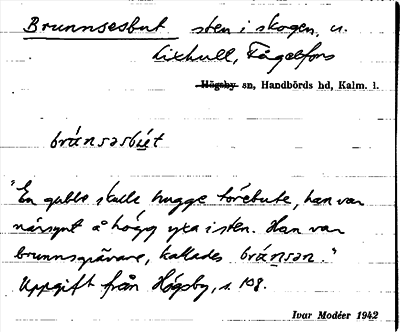 Brunnsesbut sten i skogen, u.
Lixhull, Fågelfors
Högsby sn, Handbörds hd, Kalm. l.
bránsəsbùt
"En gubbe skulle hugge törebute, han var
närsynt å högg yxa i sten. Han var
brunnsgrävare, kallades bránsən."
Uppgift från Högsby, s. 108.
Ivar Modéer 1942